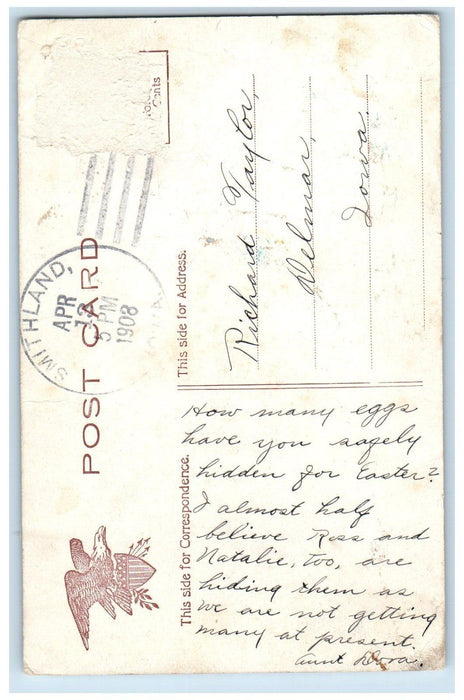 Cents
SMITHLAND,
APR
5 PM
1908
POST CARD
This side for Address.
Richard Taylor,
Delmar,
Iowa.
This side for Correspondence.
How many eggs
have you safely
hidden for Easter?
I almost half
believe Ross and
Natalie, too, are
hiding them as
we are not getting
many at present.
Aunt Dora.